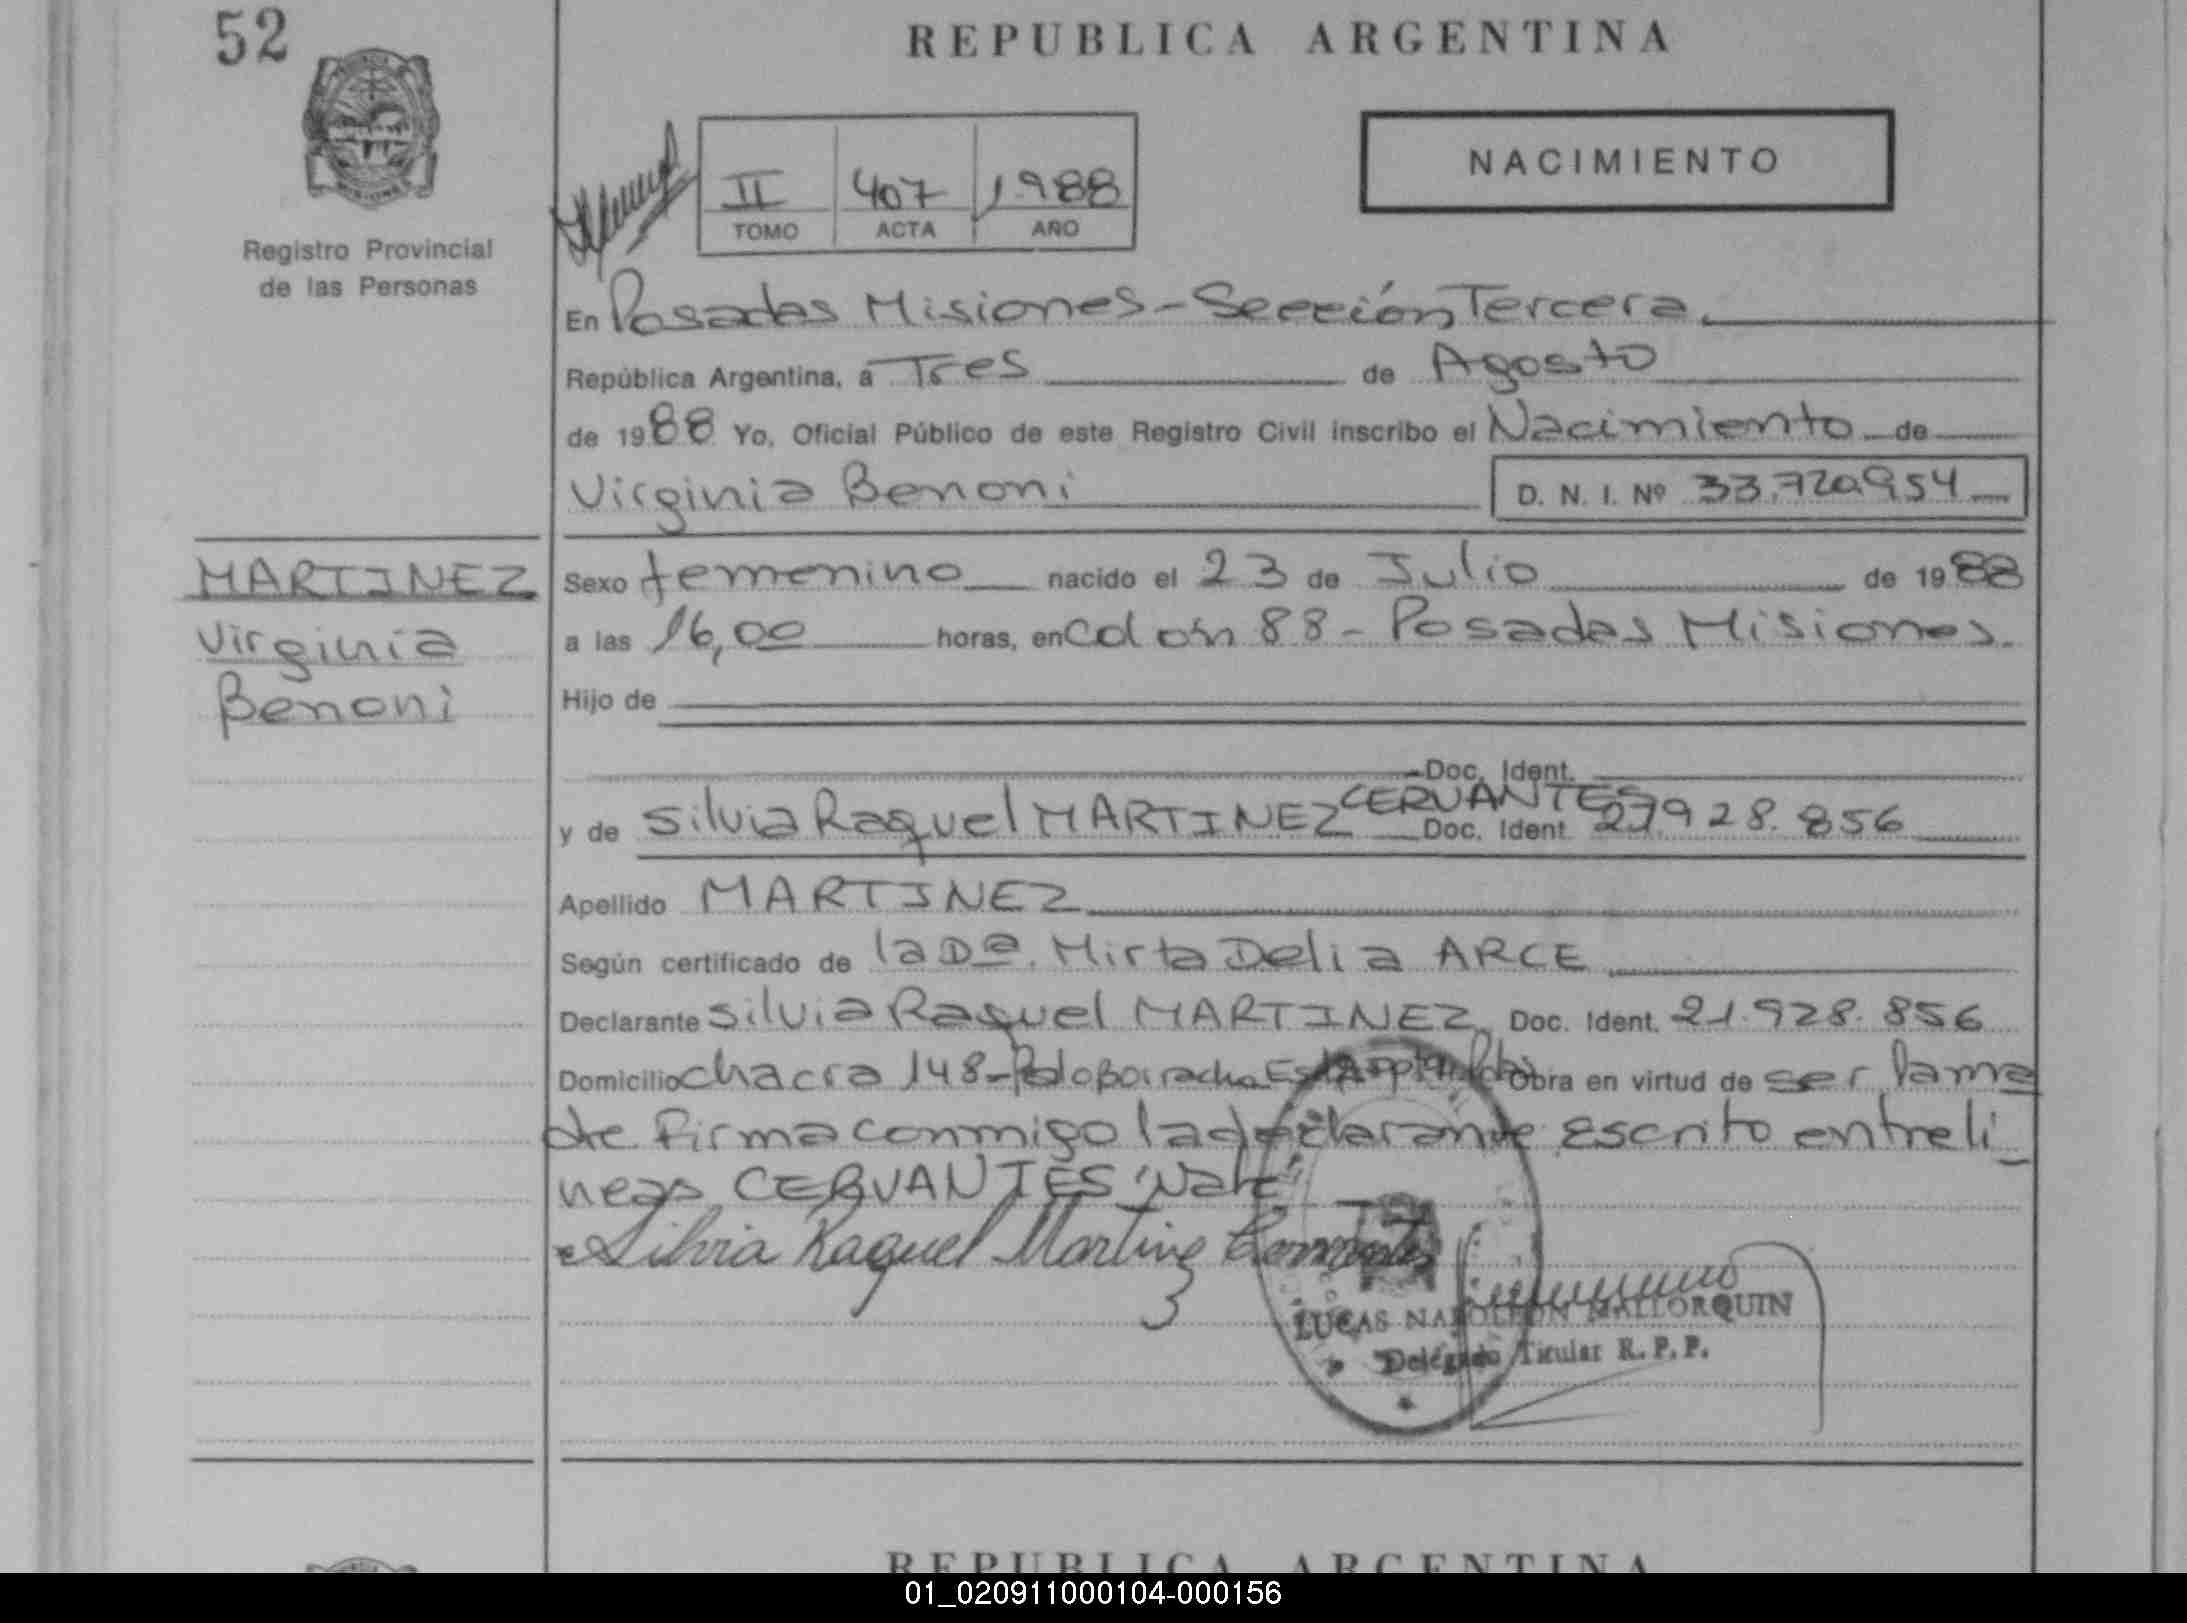 52
REPUBLICA ARGENTINA
NACIMIENTO
II 407 1988
TOMO ACTA AÑO
Registro Provincial
de las Personas
En Posadas Misiones - Sección Tercera
República Argentina, a Tres de Agosto
de 1988 Yo, Oficial Público de este Registro Civil inscribo el Nacimiento de
Virginia Benoni D. N. I. Nº 33.720.954
MARTINEZ
Virginia
Benoni
Sexo femenino nacido el 23 de Julio de 1988
a las 16,00 horas, en Colón 88 - Posadas Misiones
Hijo de
Doc. Ident.
CERVANTES
y de Silvia Raquel MARTINEZ Doc. Ident. 21.928.856
Apellido MARTINEZ
Según certificado de la Dª. Mirta Delia ARCE
Declarante Silvia Raquel MARTINEZ Doc. Ident. 21.928.856
Domicilio chacra 148 - Obra en virtud de ser la ma
dre firma conmigo la declarante escrito entre lí
neas CERVANTES "Vale"
Silvia Raquel Martinez Cervantes
LUCAS NAPOLEON MALLORQUIN
Delegado Titular R. P. P.
REPUBLICA ARGENTINA
01_020911000104-000156